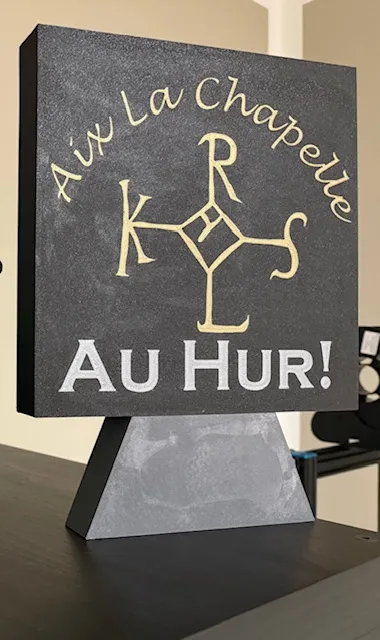 Aix La Chapelle
R
K S
L
Au Hur!